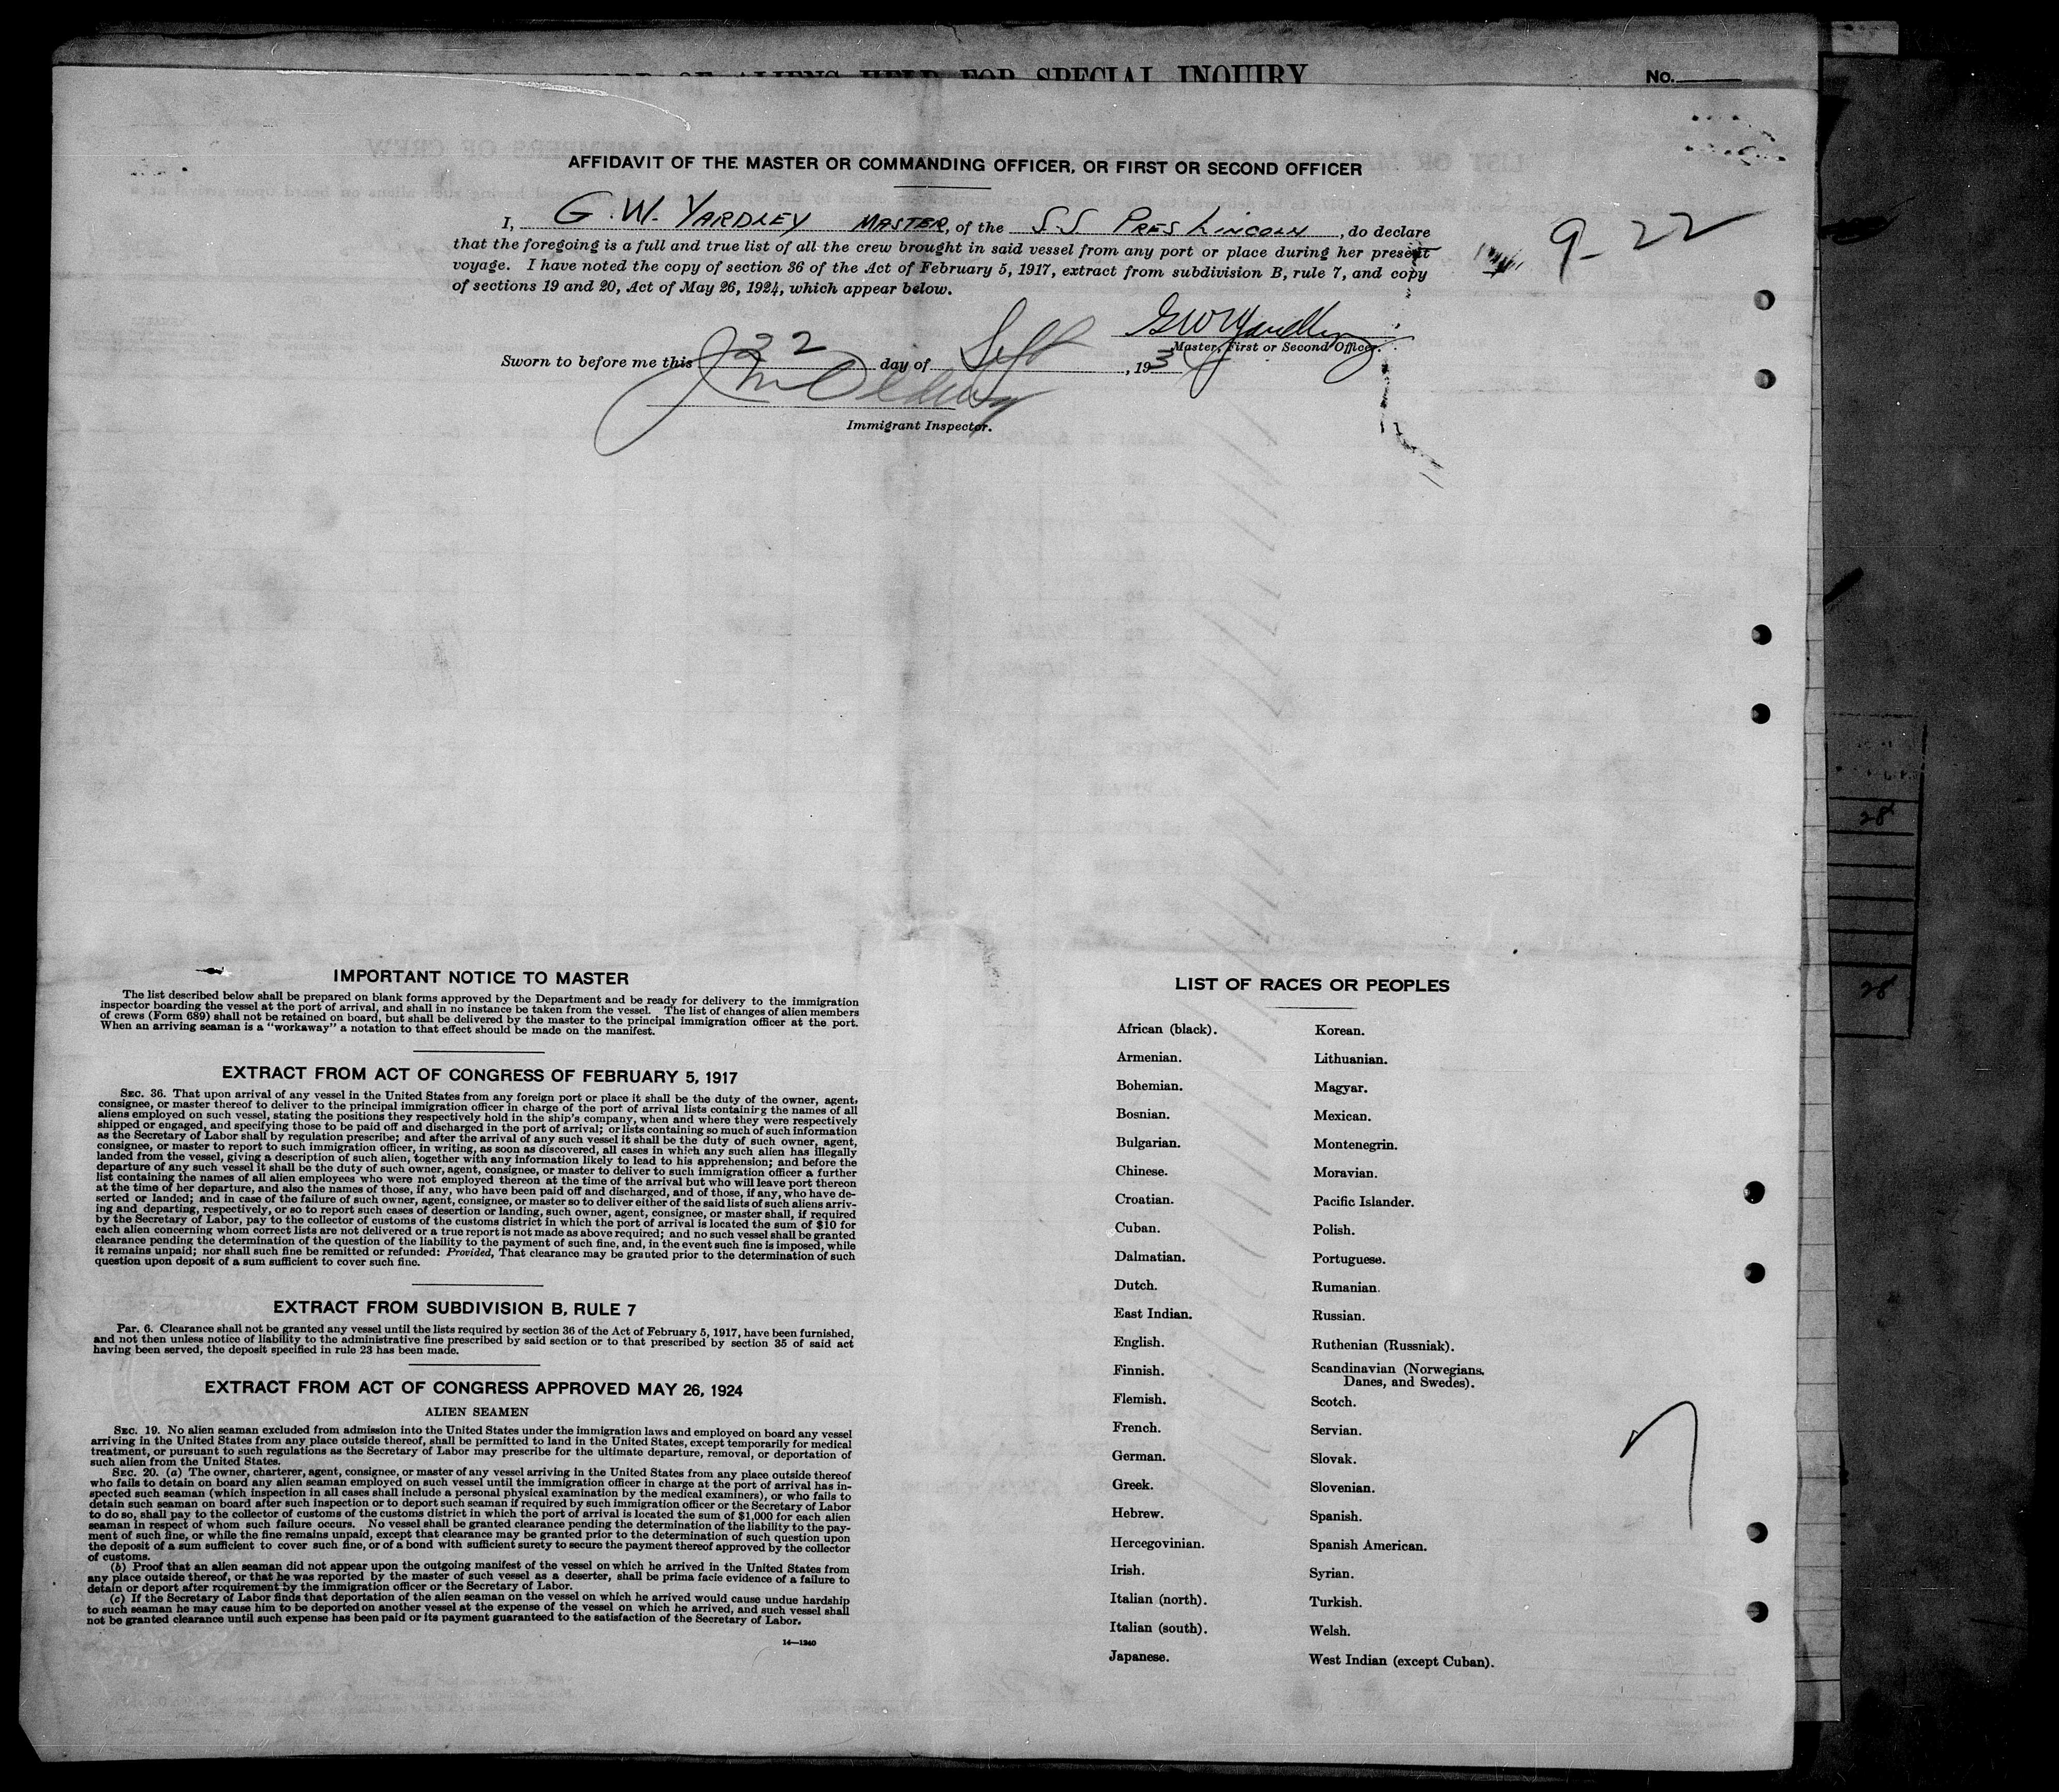 OF ALIENS HELD FOR SPECIAL INQUIRY
No.
AFFIDAVIT OF THE MASTER OR COMMANDING OFFICER, OR FIRST OR SECOND OFFICER
I, G. W. YARDLEY MASTER, of the S.S PRES LINCOLN, do declare
that the foregoing is a full and true list of all the crew brought in said vessel from any port or place during her present
voyage. I have noted the copy of section 36 of the Act of February 5, 1917, extract from subdivision B, rule 7, and copy
of sections 19 and 20, Act of May 26, 1924, which appear below.
9-22
GW Yardley
Master, First or Second Officer.
Sworn to before me this 22 day of Sept, 193
Immigrant Inspector.
28
28
IMPORTANT NOTICE TO MASTER
The list described below shall be prepared on blank forms approved by the Department and be ready for delivery to the immigration
inspector boarding the vessel at the port of arrival, and shall in no instance be taken from the vessel. The list of changes of alien members
of crews (Form 689) shall not be retained on board, but shall be delivered by the master to the principal immigration officer at the port.
When an arriving seaman is a "workaway" a notation to that effect should be made on the manifest.
EXTRACT FROM ACT OF CONGRESS OF FEBRUARY 5, 1917
SEC. 36. That upon arrival of any vessel in the United States from any foreign port or place it shall be the duty of the owner, agent,
consignee, or master thereof to deliver to the principal immigration officer in charge of the port of arrival lists containing the names of all
aliens employed on such vessel, stating the positions they respectively hold in the ship's company, when and where they were respectively
shipped or engaged, and specifying those to be paid off and discharged in the port of arrival; or lists containing so much of such information
as the Secretary of Labor shall by regulation prescribe; and after the arrival of any such vessel it shall be the duty of such owner, agent,
consignee, or master to report to such immigration officer, in writing, as soon as discovered, all cases in which any such alien has illegally
landed from the vessel, giving a description of such alien, together with any information likely to lead to his apprehension; and before the
departure of any such vessel it shall be the duty of such owner, agent, consignee, or master to deliver to such immigration officer a further
list containing the names of all alien employees who were not employed thereon at the time of the arrival but who will leave port thereon
at the time of her departure, and also the names of those, if any, who have been paid off and discharged, and of those, if any, who have de-
serted or landed; and in case of the failure of such owner, agent, consignee, or master so to deliver either of the said lists of such aliens arriv-
ing and departing, respectively, or so to report such cases of desertion or landing, such owner, agent, consignee, or master shall, if required
by the Secretary of Labor, pay to the collector of customs of the customs district in which the port of arrival is located the sum of $10 for
each alien concerning whom correct lists are not delivered or a true report is not made as above required; and no such vessel shall be granted
clearance pending the determination of the question of the liability to the payment of such fine, and, in the event such fine is imposed, while
it remains unpaid; nor shall such fine be remitted or refunded: Provided, That clearance may be granted prior to the determination of such
question upon deposit of a sum sufficient to cover such fine.
EXTRACT FROM SUBDIVISION B, RULE 7
Par. 6. Clearance shall not be granted any vessel until the lists required by section 36 of the Act of February 5, 1917, have been furnished,
and not then unless notice of liability to the administrative fine prescribed by said section or to that prescribed by section 35 of said act
having been served, the deposit specified in rule 23 has been made.
EXTRACT FROM ACT OF CONGRESS APPROVED MAY 26, 1924
ALIEN SEAMEN
SEC. 19. No alien seaman excluded from admission into the United States under the immigration laws and employed on board any vessel
arriving in the United States from any place outside thereof, shall be permitted to land in the United States, except temporarily for medical
treatment, or pursuant to such regulations as the Secretary of Labor may prescribe for the ultimate departure, removal, or deportation of
such alien from the United States.
SEC. 20. (a) The owner, charterer, agent, consignee, or master of any vessel arriving in the United States from any place outside thereof
who fails to detain on board any alien seaman employed on such vessel until the immigration officer in charge at the port of arrival has in-
spected such seaman (which inspection in all cases shall include a personal physical examination by the medical examiners), or who fails to
detain such seaman on board after such inspection or to deport such seaman if required by such immigration officer or the Secretary of Labor
to do so, shall pay to the collector of customs of the customs district in which the port of arrival is located the sum of $1,000 for each alien
seaman in respect of whom such failure occurs. No vessel shall be granted clearance pending the determination of the liability to the pay-
ment of such fine, or while the fine remains unpaid, except that clearance may be granted prior to the determination of such question upon
the deposit of a sum sufficient to cover such fine, or of a bond with sufficient surety to secure the payment thereof approved by the collector
of customs.
(b) Proof that an alien seaman did not appear upon the outgoing manifest of the vessel on which he arrived in the United States from
any place outside thereof, or that he was reported by the master of such vessel as a deserter, shall be prima facie evidence of a failure to
detain or deport after requirement by the immigration officer or the Secretary of Labor.
(c) If the Secretary of Labor finds that deportation of the alien seaman on the vessel on which he arrived would cause undue hardship
to such seaman he may cause him to be deported on another vessel at the expense of the vessel on which he arrived, and such vessel shall
not be granted clearance until such expense has been paid or its payment guaranteed to the satisfaction of the Secretary of Labor.
14—1240
LIST OF RACES OR PEOPLES
African (black).
Armenian.
Bohemian.
Bosnian.
Bulgarian.
Chinese.
Croatian.
Cuban.
Dalmatian.
Dutch.
East Indian.
English.
Finnish.
Flemish.
French.
German.
Greek.
Hebrew.
Hercegovinian.
Irish.
Italian (north).
Italian (south).
Japanese.
Korean.
Lithuanian.
Magyar.
Mexican.
Montenegrin.
Moravian.
Pacific Islander.
Polish.
Portuguese.
Rumanian.
Russian.
Ruthenian (Russniak).
Scandinavian (Norwegians,
Danes, and Swedes).
Scotch.
Servian.
Slovak.
Slovenian.
Spanish.
Spanish American.
Syrian.
Turkish.
Welsh.
West Indian (except Cuban).